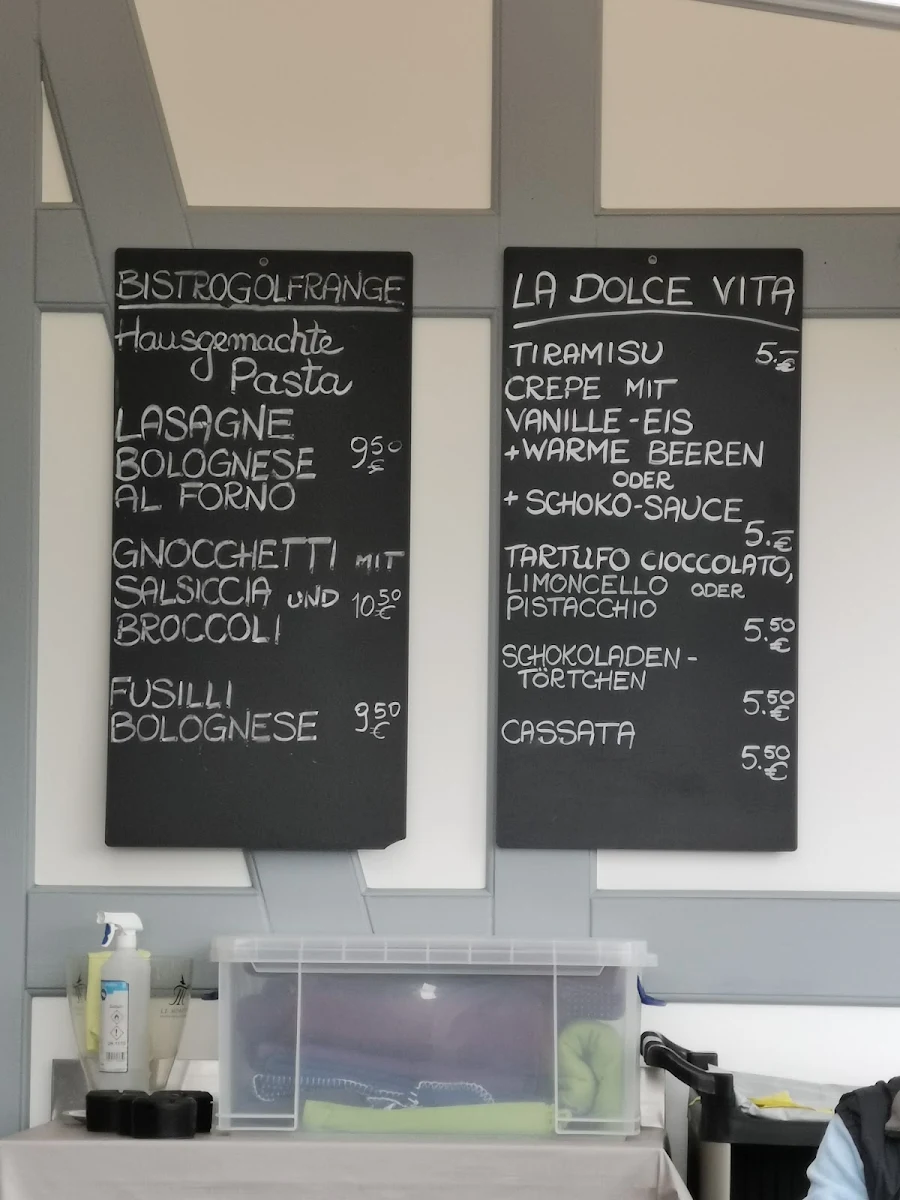 BISTROGOLFRANGE
Hausgemachte
Pasta
LASAGNE
BOLOGNESE 9⁵⁰ €
AL FORNO
GNOCCHETTI MIT
SALSICCIA UND 10.⁵⁰ €
BROCCOLI
FUSILLI
BOLOGNESE 9⁵⁰ €
LA DOLCE VITA
TIRAMISU 5.- €
CREPE MIT
VANILLE-EIS
+WARME BEEREN
ODER
+ SCHOKO-SAUCE
5.- €
TARTUFO CIOCCOLATO,
LIMONCELLO ODER
PISTACCHIO
5.⁵⁰ €
SCHOKOLADEN-
TÖRTCHEN
5.⁵⁰ €
CASSATA
5.⁵⁰ €